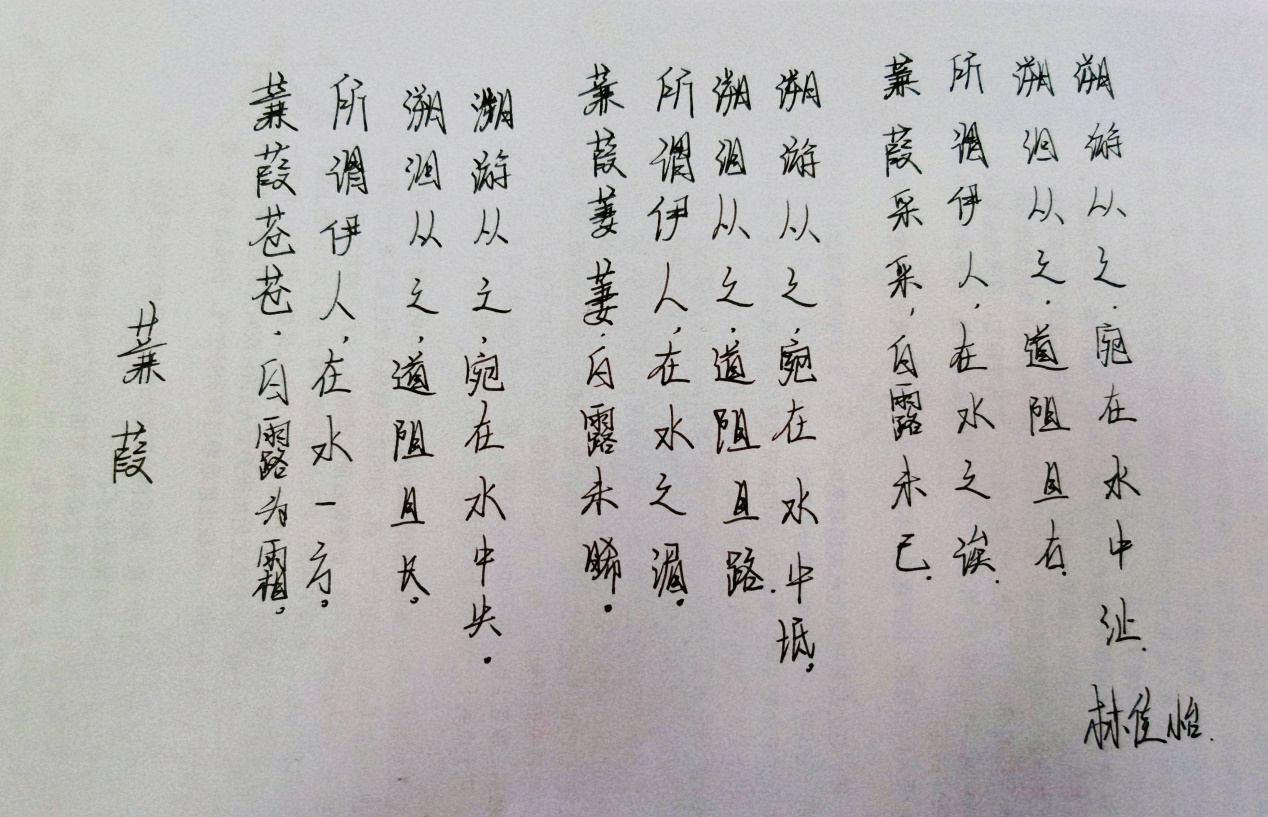 蒹葭
蒹葭苍苍．白露为霜。
所谓伊人，在水一方。
溯洄从之，道阻且长。
溯游从之，宛在水中央．
蒹葭萋萋．白露未晞。
所谓伊人，在水之湄。
溯洄从之，道阻且路．
溯游从之，宛在水中坻。
蒹葭采采，白露未已．
所谓伊人，在水之涘．
溯洄从之．道阻且右．
溯游从之．宛在水中沚．
林佳怡．